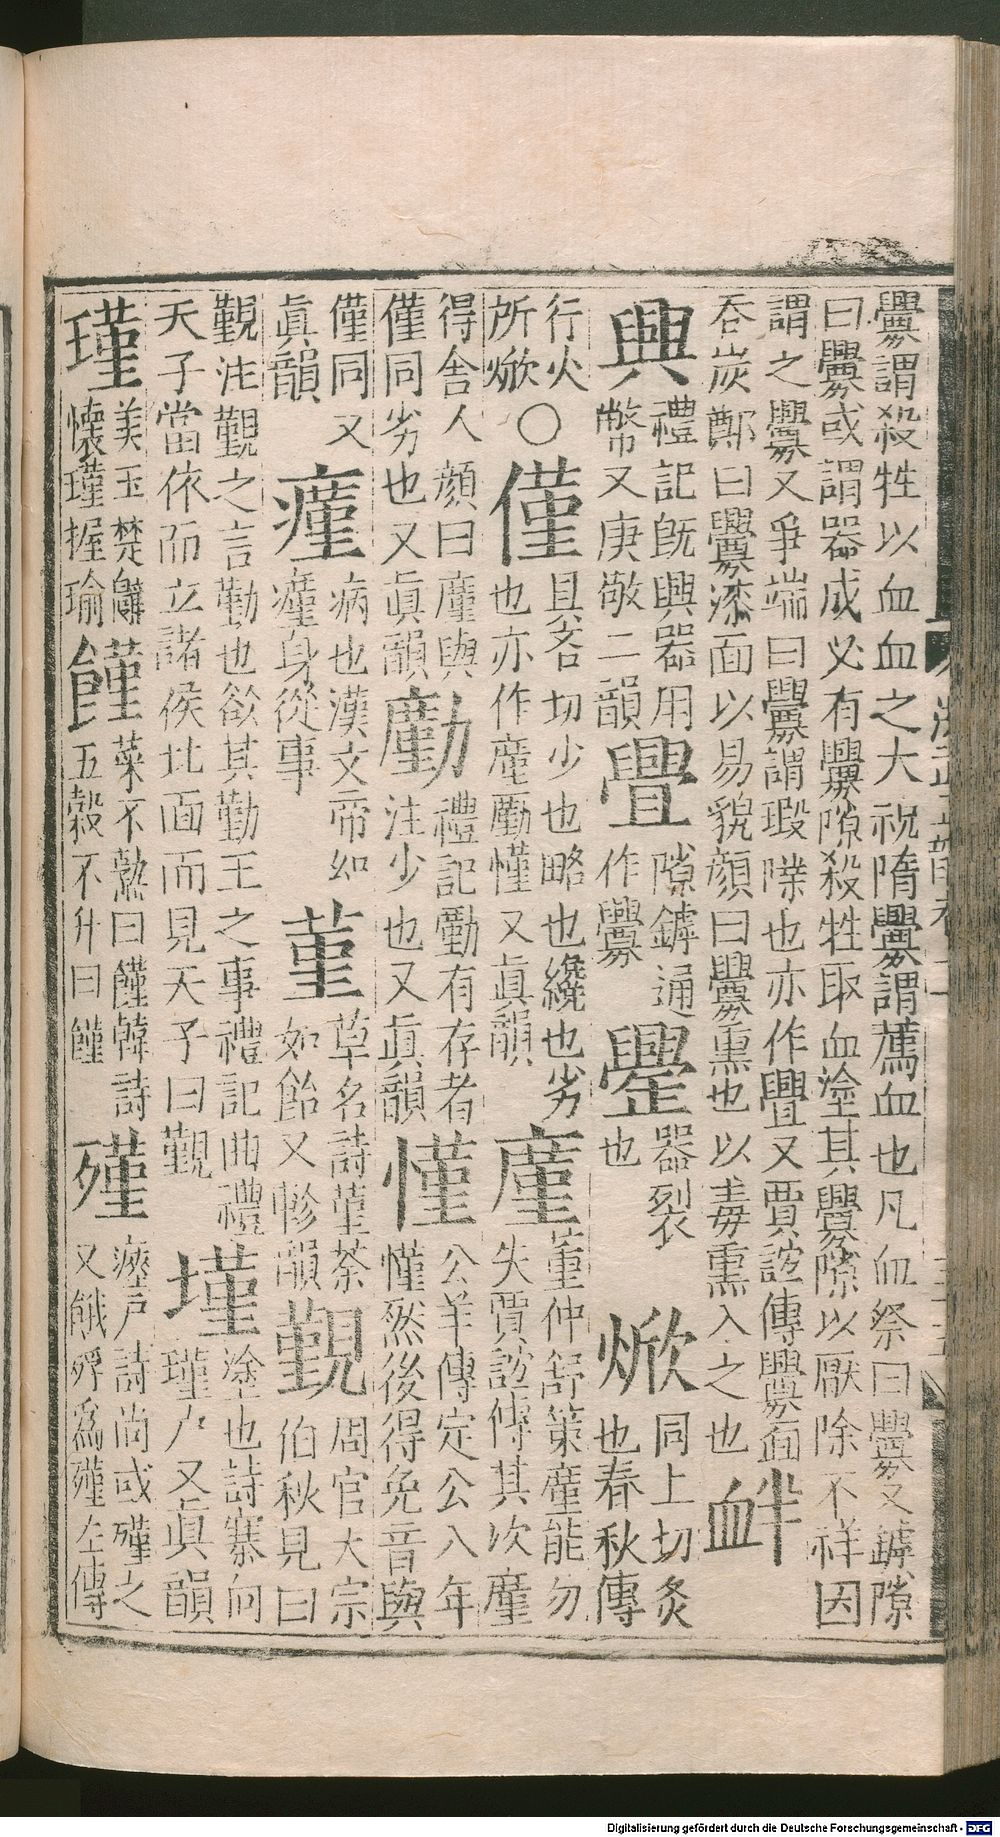 釁謂殺牲以血血之大祝隋釁謂薦血也凡血祭曰釁又罅隙
曰釁或謂器成必有釁隙殺牲取血塗其釁隙以厭除不祥因
謂之釁又爭端曰釁謂瑕隙也亦作舋又賈誼傳釁面
吞炭鄭曰釁漆面以易貌顏曰釁熏也以毒熏入之也 衅
興 禮記旣興器用
幣又庚敬二韻 舋 隙罅通
作釁 璺 器裂
也 焮 同上切炙
也春秋傳
行火
所焮 ○ 僅 具吝切少也略也纔也劣
也亦作廑勵慬又眞韻 廑 董仲舒策廑能勿
失賈誼傳其次廑
得舍人 顏曰廑與
僅同劣也又眞韻 勵 禮記勵有存者
注少也又眞韻 慬 公羊傳定公八年
慬然後得免音與
僅同又
眞韻 瘽 病也漢文帝如
瘽身從事 菫 草名詩菫荼
如飴又軫韻 覲 周官大宗
伯秋見曰
覲注覲之言勤也欲其勤王之事禮記曲禮
天子當依而立諸侯北面而見天子曰覲 墐 塗也詩塞向
墐戶又眞韻
瑾 美玉楚辭
懷瑾握瑜 饉 菜不熟曰饉韓詩
五穀不升曰饉 殣 瘞尸詩尚或殣之
又餓殍爲殣左傳
Digitalisierung gefördert durch die Deutsche Forschungsgemeinschaft - DFG